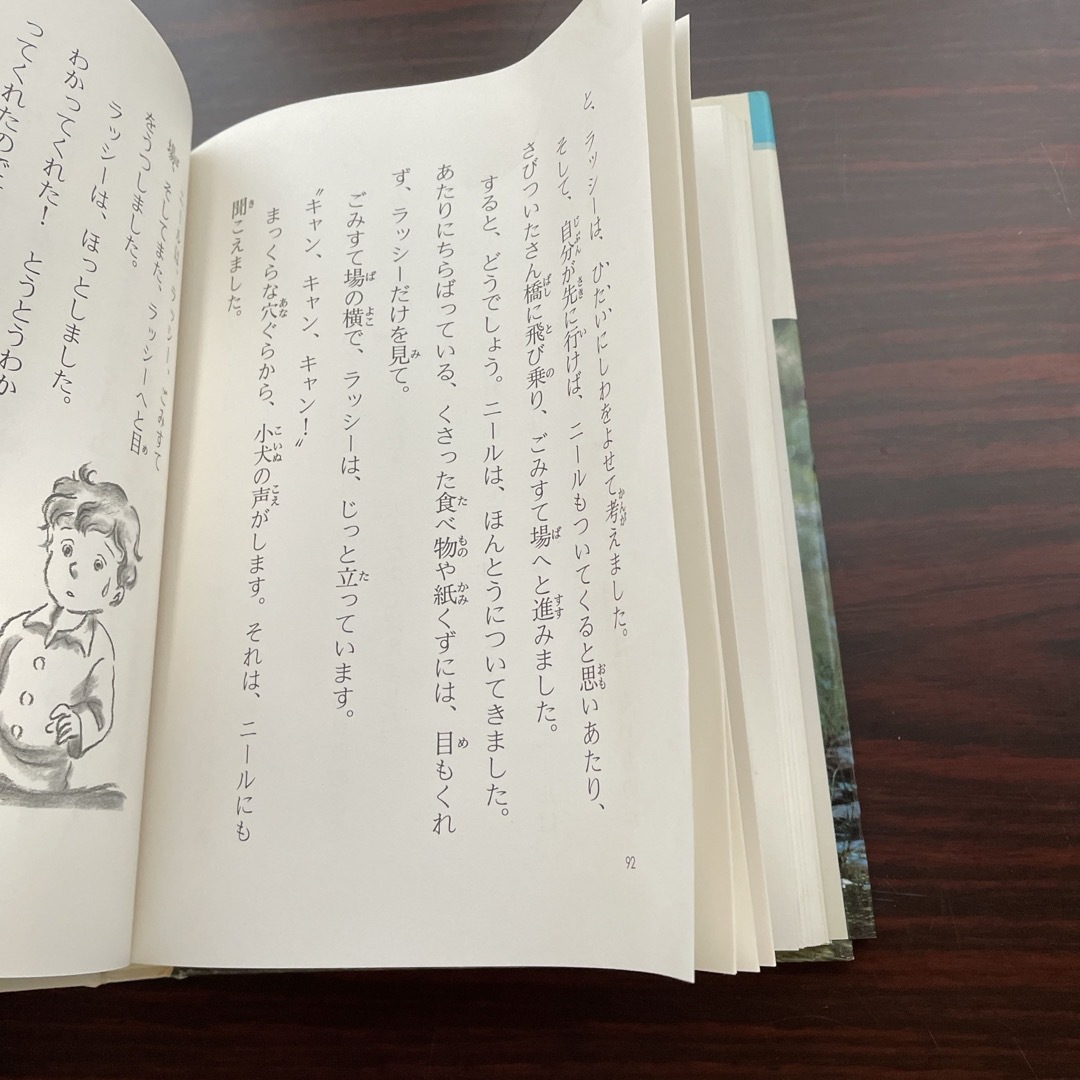 と、ラッシーは、ひたいにしわをよせて考えました。
そして、自分が先に行けば、ニールもついてくると思いあたり、
さびついたさん橋に飛び乗り、ごみすて場へと進みました。
すると、どうでしょう。ニールは、ほんとうについてきました。
あたりにちらばっている、くさった食べ物や紙くずには、目もくれ
ず、ラッシーだけを見て。
ごみすて場の横で、ラッシーは、じっと立っています。
“キャン、キャン、キャン！”
まっくらな穴ぐらから、小犬の声がします。それは、ニールにも
聞こえました。
92
そしてまた、ラッシーへと目
をうつしました。
ラッシーは、ほっとしました。
わかってくれた！　とうとうわか
ってくれたので